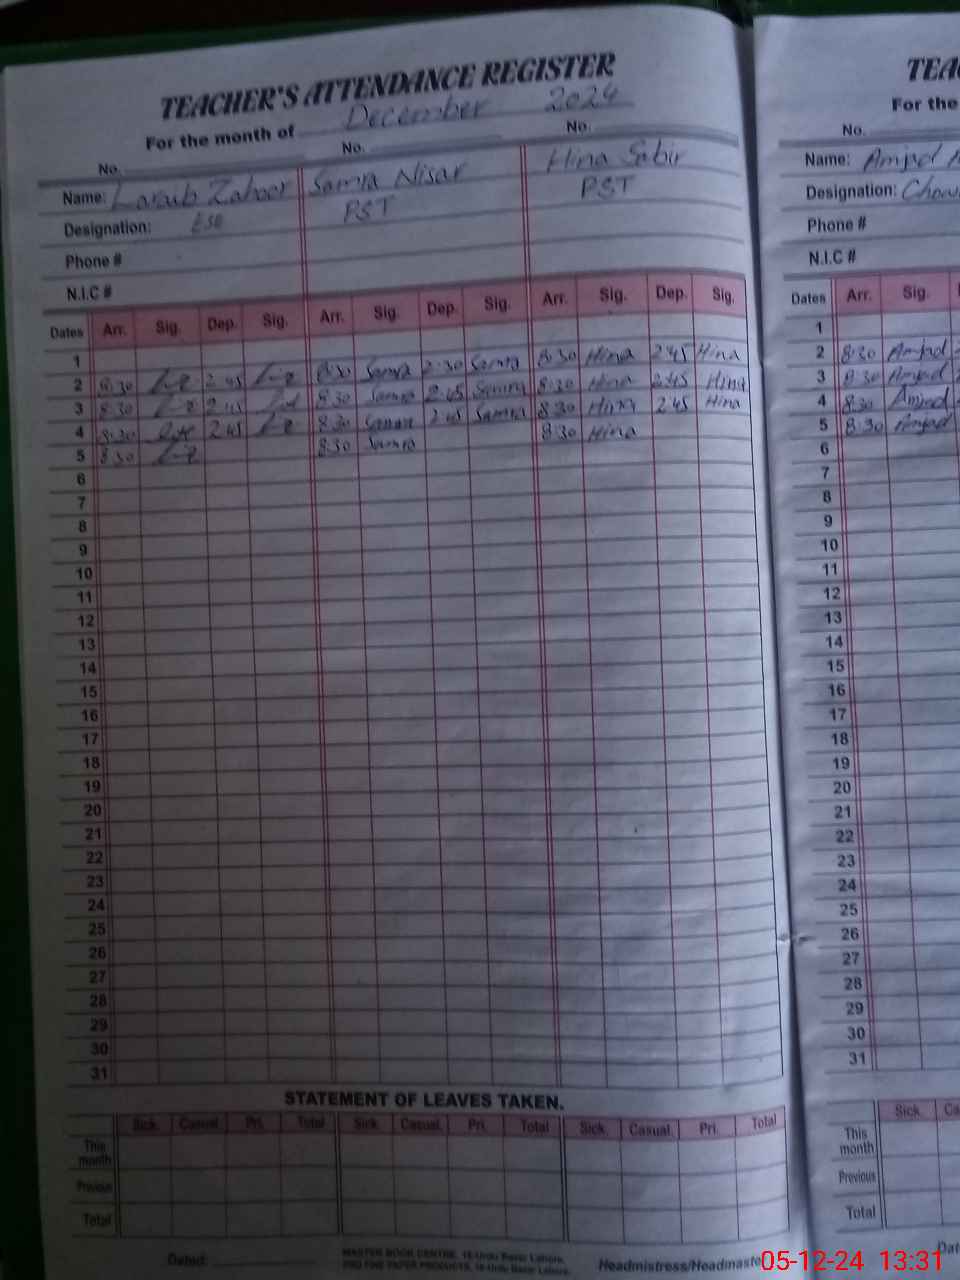 TEACHER'S ATTENDANCE REGISTER
For the month of December 2024
No. No. No.
Name: Laraib Zahoor Samra Nisar Hina Sabir
Designation: ESE PST PST
Phone #
N.I.C #
Dates Arr. Sig. Dep. Sig. Arr. Sig. Dep. Sig. Arr. Sig. Dep. Sig.
1
2 8:30 2:45 8:30 Samra 2:30 Samra 8:30 Hina 2:45 Hina
3 8:30 2:45 8:30 Samra 2:45 Samra 8:30 Hina 2:45 Hina
4 8:30 2:45 8:30 Samra 2:45 Samra 8:30 Hina 2:45 Hina
5 8:30 8:30 Samra 8:30 Hina
6
7
8
9
10
11
12
13
14
15
16
17
18
19
20
21
22
23
24
25
26
27
28
29
30
31
STATEMENT OF LEAVES TAKEN.
Sick. Casual. Pri. Total Sick. Casual. Pri. Total Sick. Casual. Pri. Total
This month
Previous
Total
Dated:
MASTER BOOK CENTRE, 16-Urdu Bazar Lahore.
Headmistress/Headmaste
TEA
For the
No.
Name: Amjad
Designation: Chow
Phone #
N.I.C #
Dates Arr. Sig.
1
2 8:30 Amjad
3 8:30 Amjad
4 8:30 Amjad
5 8:30 Amjad
6
7
8
9
10
11
12
13
14
15
16
17
18
19
20
21
22
23
24
25
26
27
28
29
30
31
Sick. Ca
This month
Previous
Total
Dat
05-12-24 13:31